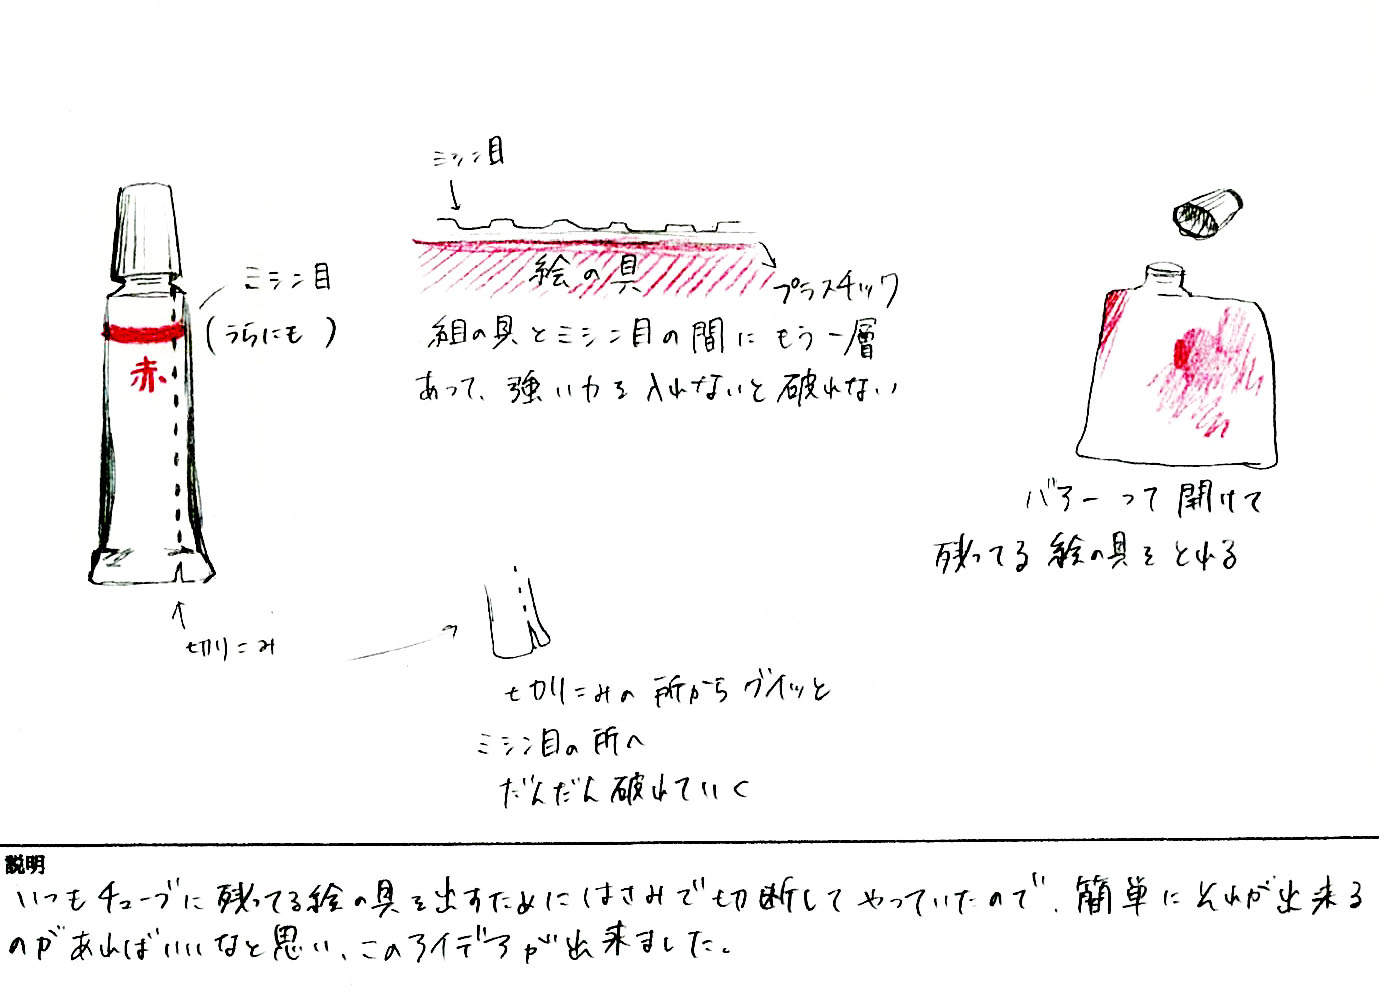 ミシン目
ミシン目
(うらにも)
赤
絵の具
プラスチック
組の具とミシン目の間にもう一層
あって、強い力を入れないと破れない
バアーって開けて
残ってる絵の具をとれる
切りこみ
切りこみの所からグイッと
ミシン目の所へ
だんだん破れていく
説明
いつもチューブに残ってる絵の具を出すためにはさみで切断してやっていたので、簡単にそれが出来る
のがあればいいなと思い、このアイデアが出来ました。